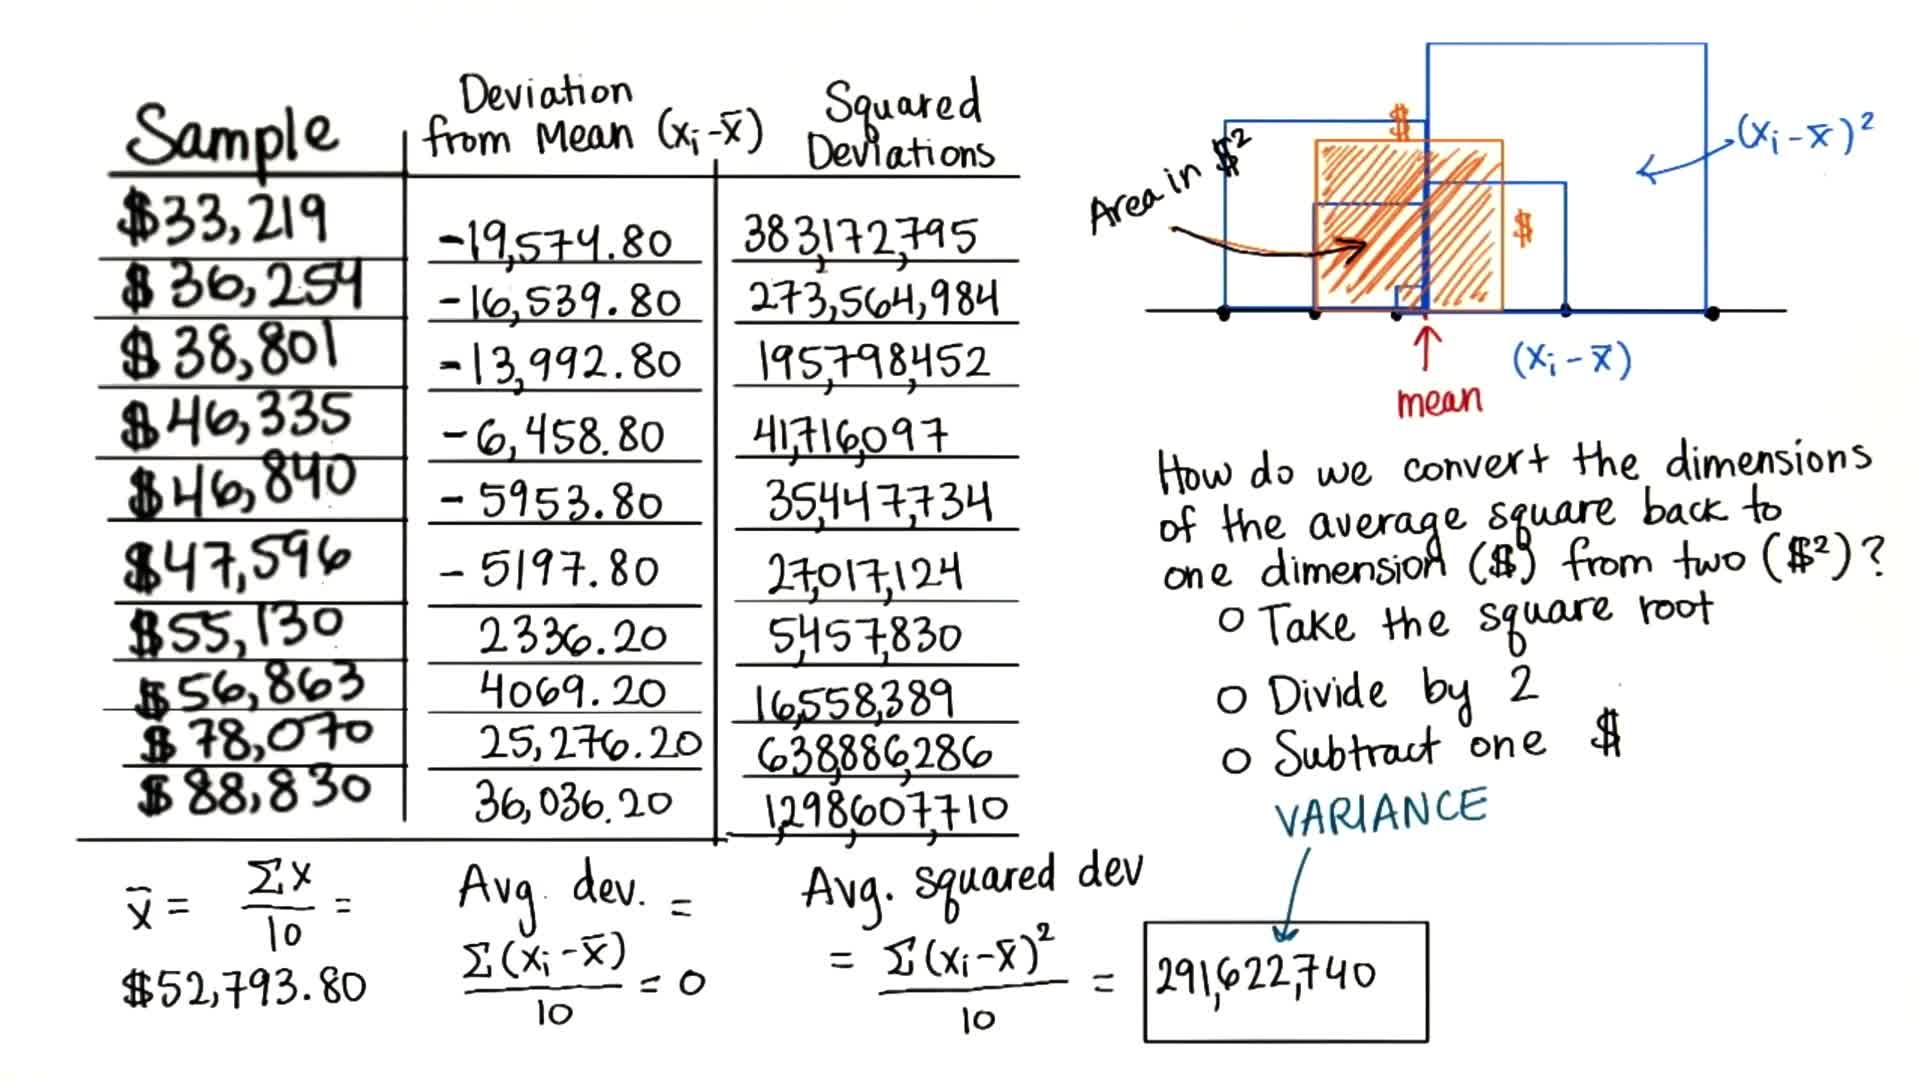 Sample
Deviation
from Mean (xᵢ-x̄)
Squared
Deviations
$33,219
-19,574.80
383,172,795
$36,254
-16,539.80
273,564,984
$38,801
-13,992.80
195,798,452
$46,335
-6,458.80
41,716,097
$46,840
-5953.80
35,447,734
$47,596
-5197.80
27,017,124
$55,130
2336.20
5,457,830
$56,863
4069.20
16,558,389
$78,070
25,276.20
638,886,286
$88,830
36,036.20
1,298,607,710
x̄ = Σx/10 =
$52,793.80
Avg. dev. =
Σ(xᵢ-x̄)/10 = 0
Avg. squared dev
= Σ(xᵢ-x̄)²/10 = 291,622,740
$
$
Area in $²
(xᵢ-x̄)²
(xᵢ-x̄)
mean
How do we convert the dimensions
of the average square back to
one dimension ($) from two ($²)?
O Take the square root
O Divide by 2
O Subtract one $
VARIANCE